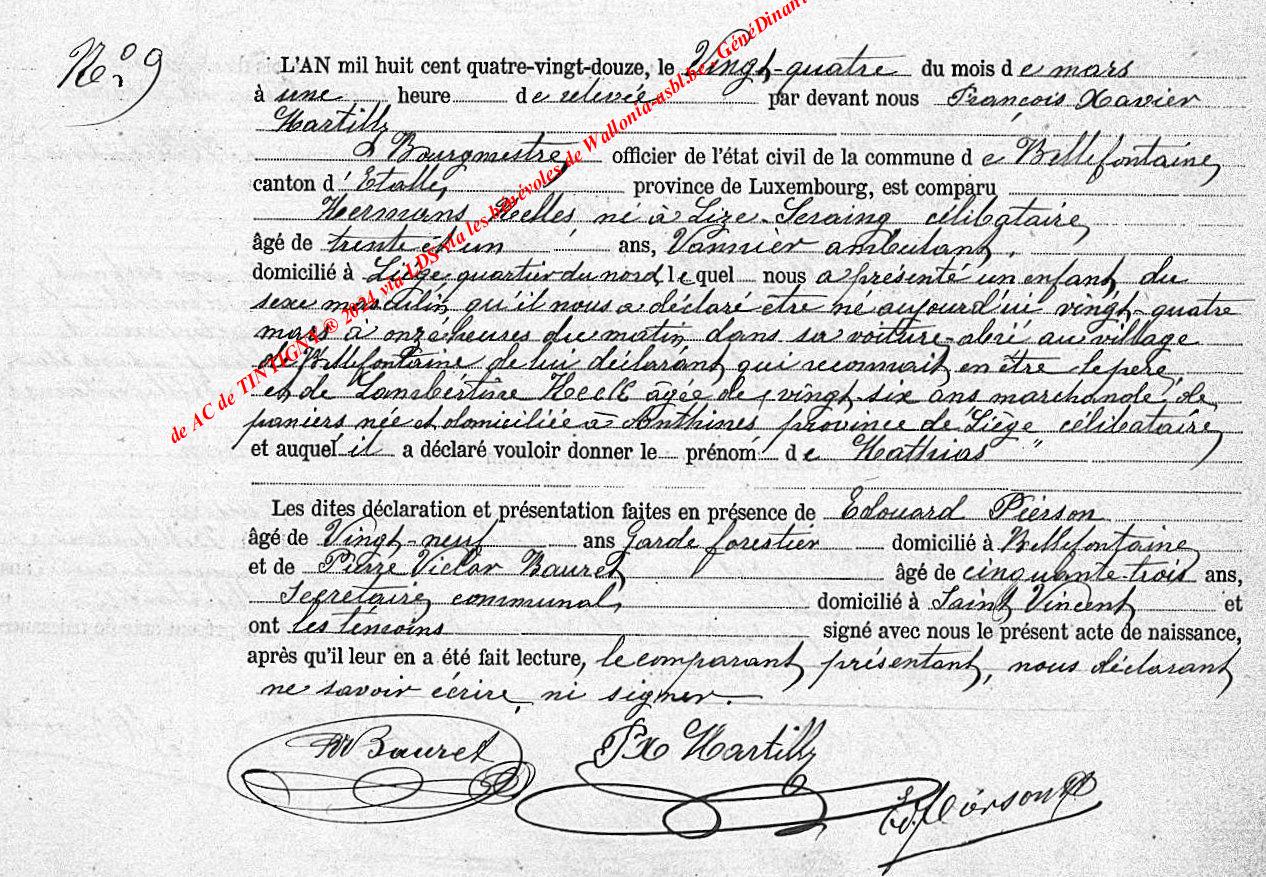 N° 9
L'AN mil huit cent quatre-vingt-douze, le Vingt-quatre du mois de mars
à une heure de relevée par devant nous François Xavier
Martilly
Bourgmestre, officier de l'état civil de la commune de Bellefontaine,
canton d'Etalle, province de Luxembourg, est comparu
Hermans né à Lize-Seraing célibataire,
âgé de trente et un ans, Vannier ambulant,
domicilié à Liège quartier du nord, lequel nous a présenté un enfant du
sexe masculin qu'il nous a déclaré être né aujourd'ui vingt-quatre
mars à onze heures du matin dans sa voiture au village
de Bellefontaine de lui déclarant qui reconnait en être le père,
et de Lambertine âgée de vingt-six ans marchande de
paniers née et domiciliée à Anthines province de Liège célibataire,
et auquel il a déclaré vouloir donner le prénom de Mathias "
Les dites déclaration et présentation faites en présence de Edouard Pierson
âgé de Vingt-neuf ans Garde forestier domicilié à Bellefontaine
et de Pierre Victor Bauret âgé de cinquante-trois ans,
Secrétaire communal, domicilié à Saint Vincent et
ont les témoins signé avec nous le présent acte de naissance,
après qu'il leur en a été fait lecture, le comparant, présentant, nous déclarant
ne savoir écrire, ni signer.
Bauret
FX Martilly
Ed. Pierson
de AC de TINTIGNY ® 2024 via LDS via les bénévoles de Wallonia-asbl.be - GénéDinant